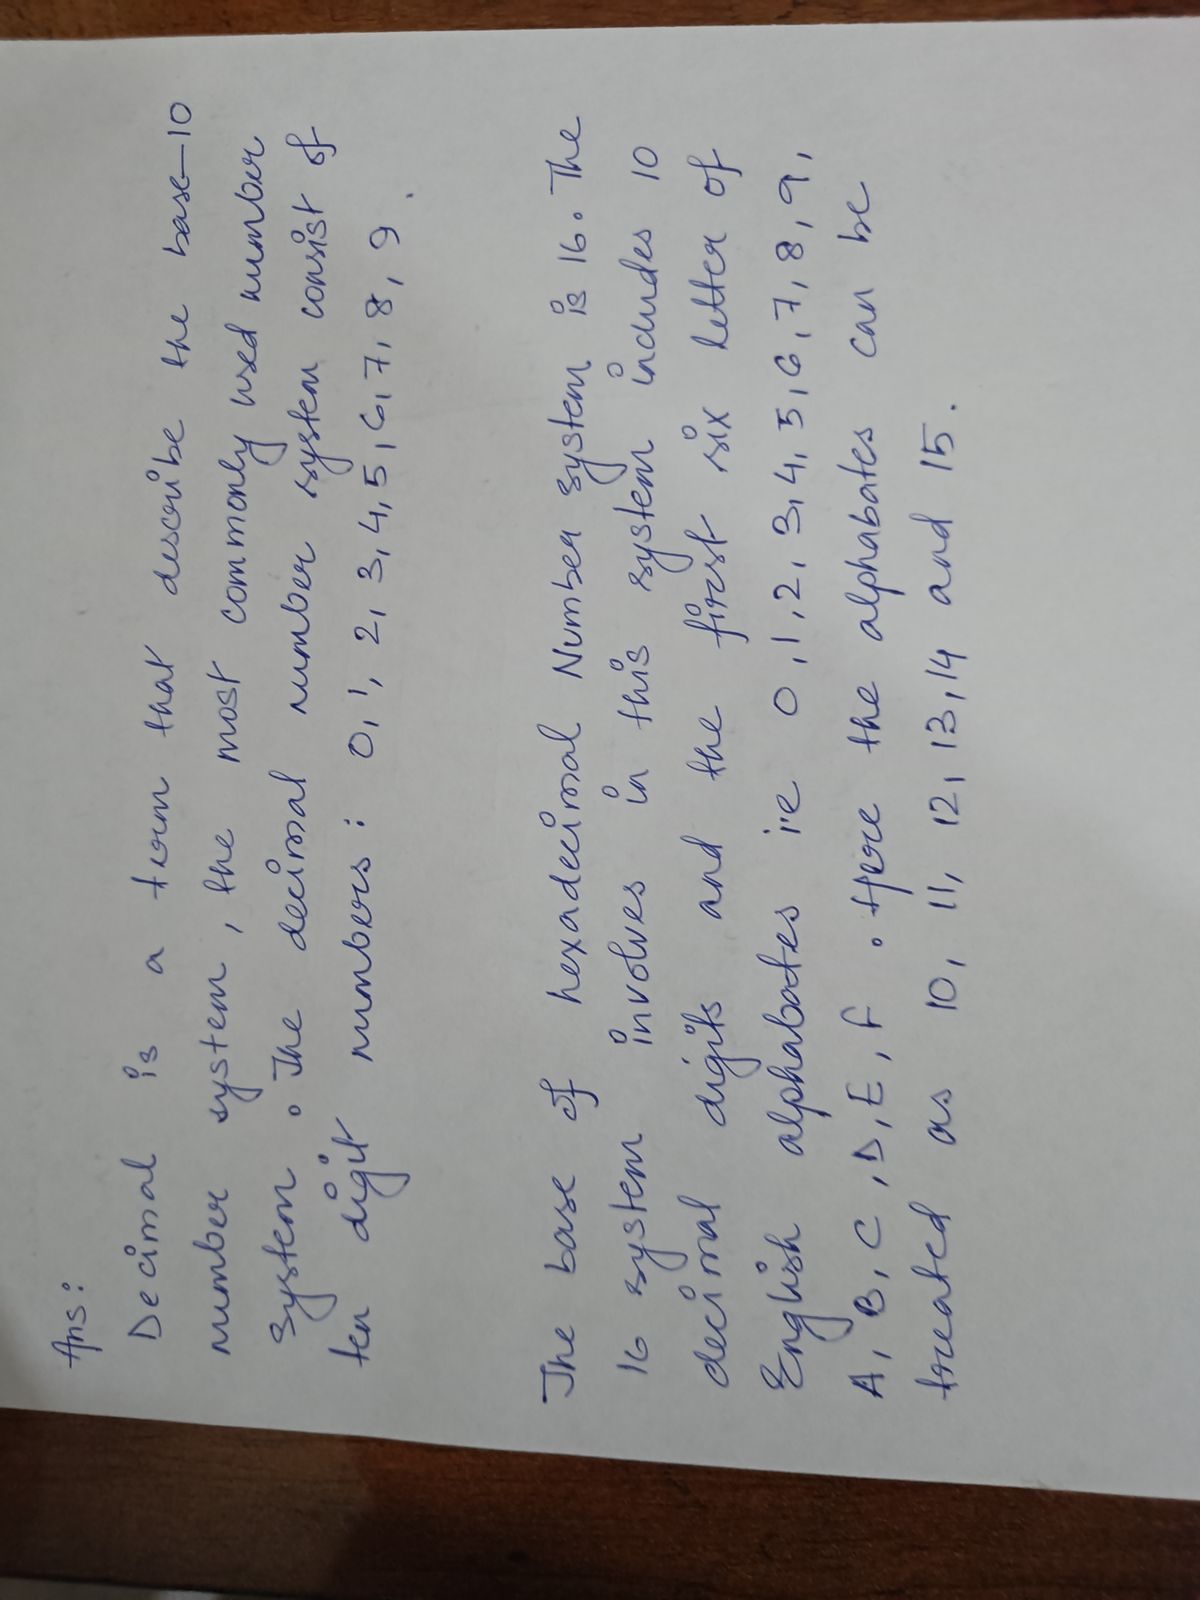 Ans:
Decimal is a term that describe the base-10
number system, the most commonly used number
system. The decimal number system consist of
ten digit numbers: 0, 1, 2, 3, 4, 5, 6, 7, 8, 9.
The base of hexadecimal Number system is 16. The
16 system involves in this system includes 10
decimal digits and the first six letter of
English alphabates i'e 0, 1, 2, 3, 4, 5, 6, 7, 8, 9,
A, B, C, D, E, F. Here the alphabates can be
treated as 10, 11, 12, 13, 14 and 15.